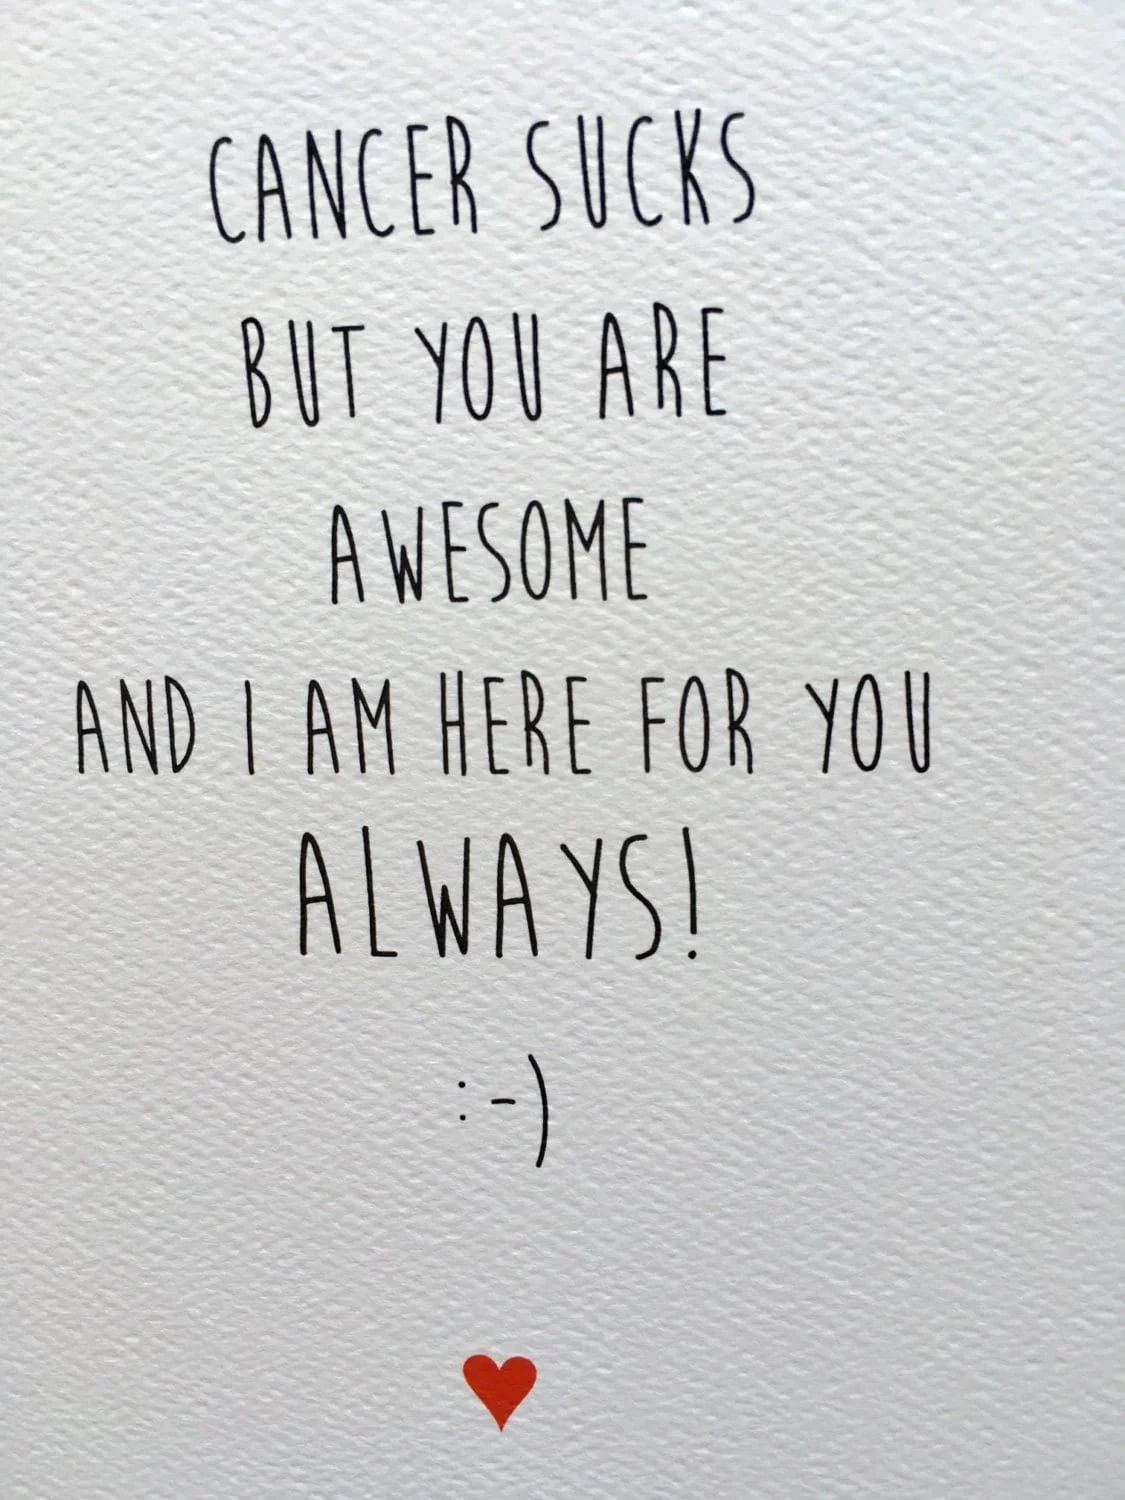 CANCER SUCKS
BUT YOU ARE
AWESOME
AND I AM HERE FOR YOU
ALWAYS!
:-)